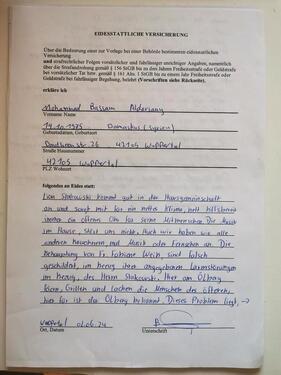 EIDESSTATTLICHE VERSICHERUNG
Über die Bedeutung einer zur Vorlage bei einer Behörde bestimmten eidesstattlichen
Versicherung
und strafrechtlicher Folgen vorsätzlicher und fahrlässiger unrichtiger Angaben, namentlich
über die Strafandrohung gemäß § 156 StGB bis zu drei Jahren Freiheitsstrafe oder Geldstrafe
bei vorsätzlicher Tat bzw. gemäß § 161 Abs. 1 StGB bis zu einem Jahr Freiheitsstrafe oder
Geldstrafe bei fahrlässiger Begehung, belehrt (Vorschriften siehe Rückseite),
erkläre ich
Mohamad Bassam
Vorname Name
14.10.1975 Damaskus (Syrien)
Geburtsdatum, Geburtsort
26 42105 Wuppertal
Straße Hausnummer
42105 Wuppertal
PLZ Wohnort
folgendes an Eides statt:
kommt gut in der Hausgemeinschaft
an und sorgt mit für ein nettes Klima, hilfsbereit
immer ein offenes Ohr für seine Mitmenschen. Die Musik
im Hause, stört uns nicht. Auch wir haben wie alle
anderen Bewohnern, mal Musik oder Fernseher an. Die
Behauptung von Fr. Fabiane sind falsch
geschildert, im bezug ihrer angegebenen Lärmstörungen
im bezug, des Herrn Hier am Ölberg
feiern, Grillen und lachen die Menschen des öfteren,
hier für ist da Ölberg bekannt. Dieses Problem liegt, →
Wuppertal 02.06.24
Ort, Datum Unterschrift